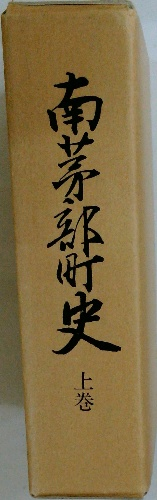 南茅部町史
上巻